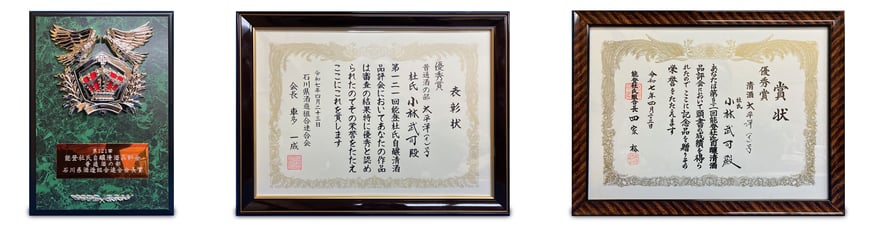 第121回
能登杜氏自醸清酒品評会
普通酒の部
石川県酒造組合連合会長賞
表彰状
優秀賞
普通酒の部 太平洋
杜氏 小林武司殿
第一二一回能登杜氏自醸清酒
品評会においてあなたの作品
は審査の結果特に優秀と認め
られたのでその栄誉をたたえ
ここにこれを賞します
令和七年四月二十三日
石川県酒造組合連合会
会長 車多一成
賞状
優秀賞
清酒 太平洋
杜氏 小林武司殿
あなたは第121回能登杜氏自醸清酒
品評会において頭書の成績を得ら
れたのでここに記念品を贈りその
栄誉をたたえます
令和七年四月二十三日
能登杜氏組合長 四家裕